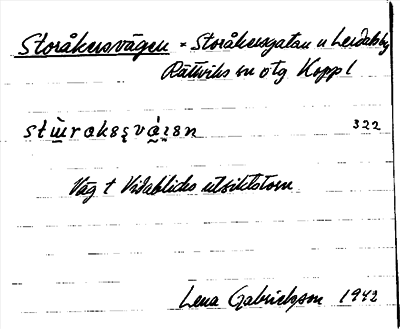 Storåkersvägen = Storåkersgatan u Lerdalsby
Rättviks sn otg Koppl
322
Väg t Vidablicks utsiktstorn
Lena Gabrielsson 1942